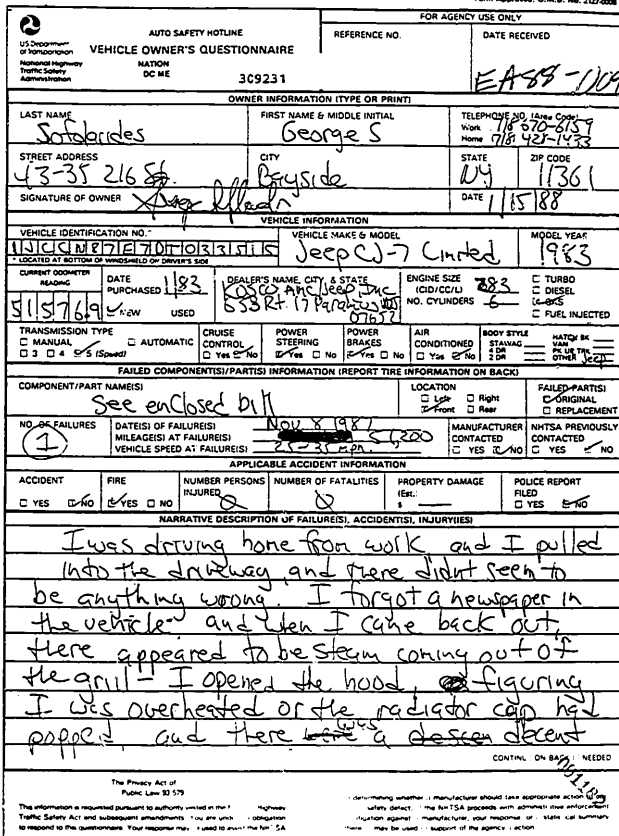 Form Approved: O.M.B. No. 2127-0008
US Department of Transportation
National Highway Traffic Safety Administration
AUTO SAFETY HOTLINE
VEHICLE OWNER'S QUESTIONNAIRE
NATION
DC ME 309231
FOR AGENCY USE ONLY
REFERENCE NO.
DATE RECEIVED
EA88-009
OWNER INFORMATION (TYPE OR PRINT)
LAST NAME
FIRST NAME & MIDDLE INITIAL
George S
TELEPHONE NO. (Area Code)
Work 718 670-6159
Home 718 428-1433
STREET ADDRESS
43-35 216 St.
CITY
Bayside
STATE
NY
ZIP CODE
11361
SIGNATURE OF OWNER
DATE 1/15/88
VEHICLE INFORMATION
VEHICLE IDENTIFICATION NO.*
1JCCN87E7DT033515
* LOCATED AT BOTTOM OF WINDSHIELD ON DRIVER'S SIDE
VEHICLE MAKE & MODEL
Jeep CJ-7 Limited
MODEL YEAR
1983
CURRENT ODOMETER READING
51576.9
DATE PURCHASED 1/83
NEW USED
DEALER'S NAME, CITY, & STATE
Kosco AMC Jeep, Inc
653 Rt. 17 Paramus NJ
07652
ENGINE SIZE (CID/CC/L)
NO. CYLINDERS 6
TURBO
DIESEL
GAS
FUEL INJECTED
TRANSMISSION TYPE
MANUAL AUTOMATIC
3 4 5 (Speed)
CRUISE CONTROL Yes No
POWER STEERING Yes No
POWER BRAKES Yes No
AIR CONDITIONED Yes No
BODY STYLE
STAWAG
4 DR
2 DR
HATCH BK
VAN
PK UP TRK
OTHER Jeep
FAILED COMPONENT(S)/PART(S) INFORMATION (REPORT TIRE INFORMATION ON BACK)
COMPONENT/PART NAME(S)
See enclosed bill
LOCATION
Left Right
Front Rear
FAILED PART(S)
ORIGINAL
REPLACEMENT
NO. OF FAILURES
1
DATE(S) OF FAILURE(S) Nov 8 1987
MILEAGE(S) AT FAILURE(S) 51,200
VEHICLE SPEED AT FAILURE(S) 25-35 mph.
MANUFACTURER CONTACTED
YES NO
NHTSA PREVIOUSLY CONTACTED
YES NO
APPLICABLE ACCIDENT INFORMATION
ACCIDENT
YES NO
FIRE
YES NO
NUMBER PERSONS INJURED
0
NUMBER OF FATALITIES
0
PROPERTY DAMAGE
(Est.)
$
POLICE REPORT FILED
YES NO
NARRATIVE DESCRIPTION OF FAILURE(S), ACCIDENT(S), INJURY(IES)
I was driving home from work, and I pulled
into the driveway, and there didnt seem to
be anything wrong. I forgot a newspaper in
the vehicle and when I came back out,
there appeared to be steam coming out of
the grill - I opened the hood, figuring
I was overheated or the radiator cap had
popped, and there was a decent
CONTINUE ON BACK IF NEEDED
The Privacy Act of
Public Law 93-579
This information is requested pursuant to authority vested in the Highway
Traffic Safety Act and subsequent amendments. You are under obligation
to respond to this questionnaire. Your response may be used to assist the NHTSA
determining whether a manufacturer should take appropriate action
safety defect. the NHTSA proceeds with administrative enforcement
litigation against manufacturer, your response, or statistical summary
may be used support of the agency's action